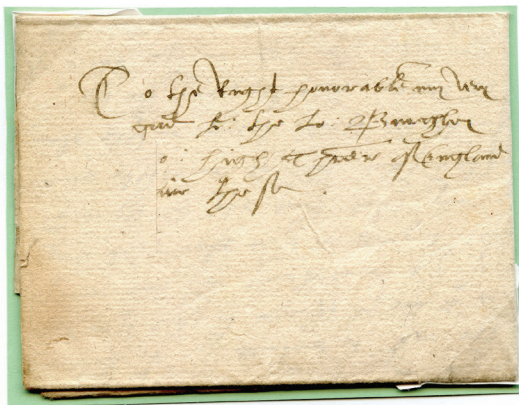 To the Right honorable my very
good L: the Lo: Burghley
Lo: high Threr of England
give these